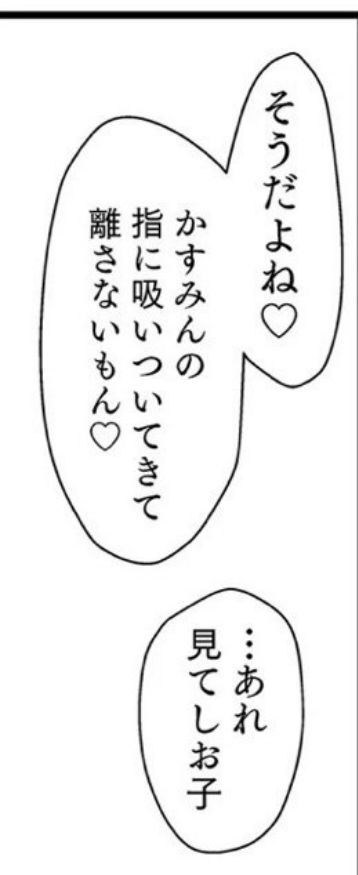 そうだよね♡
かすみんの
指に吸いついてきて
離さないもん♡
…あれ
見てしお子